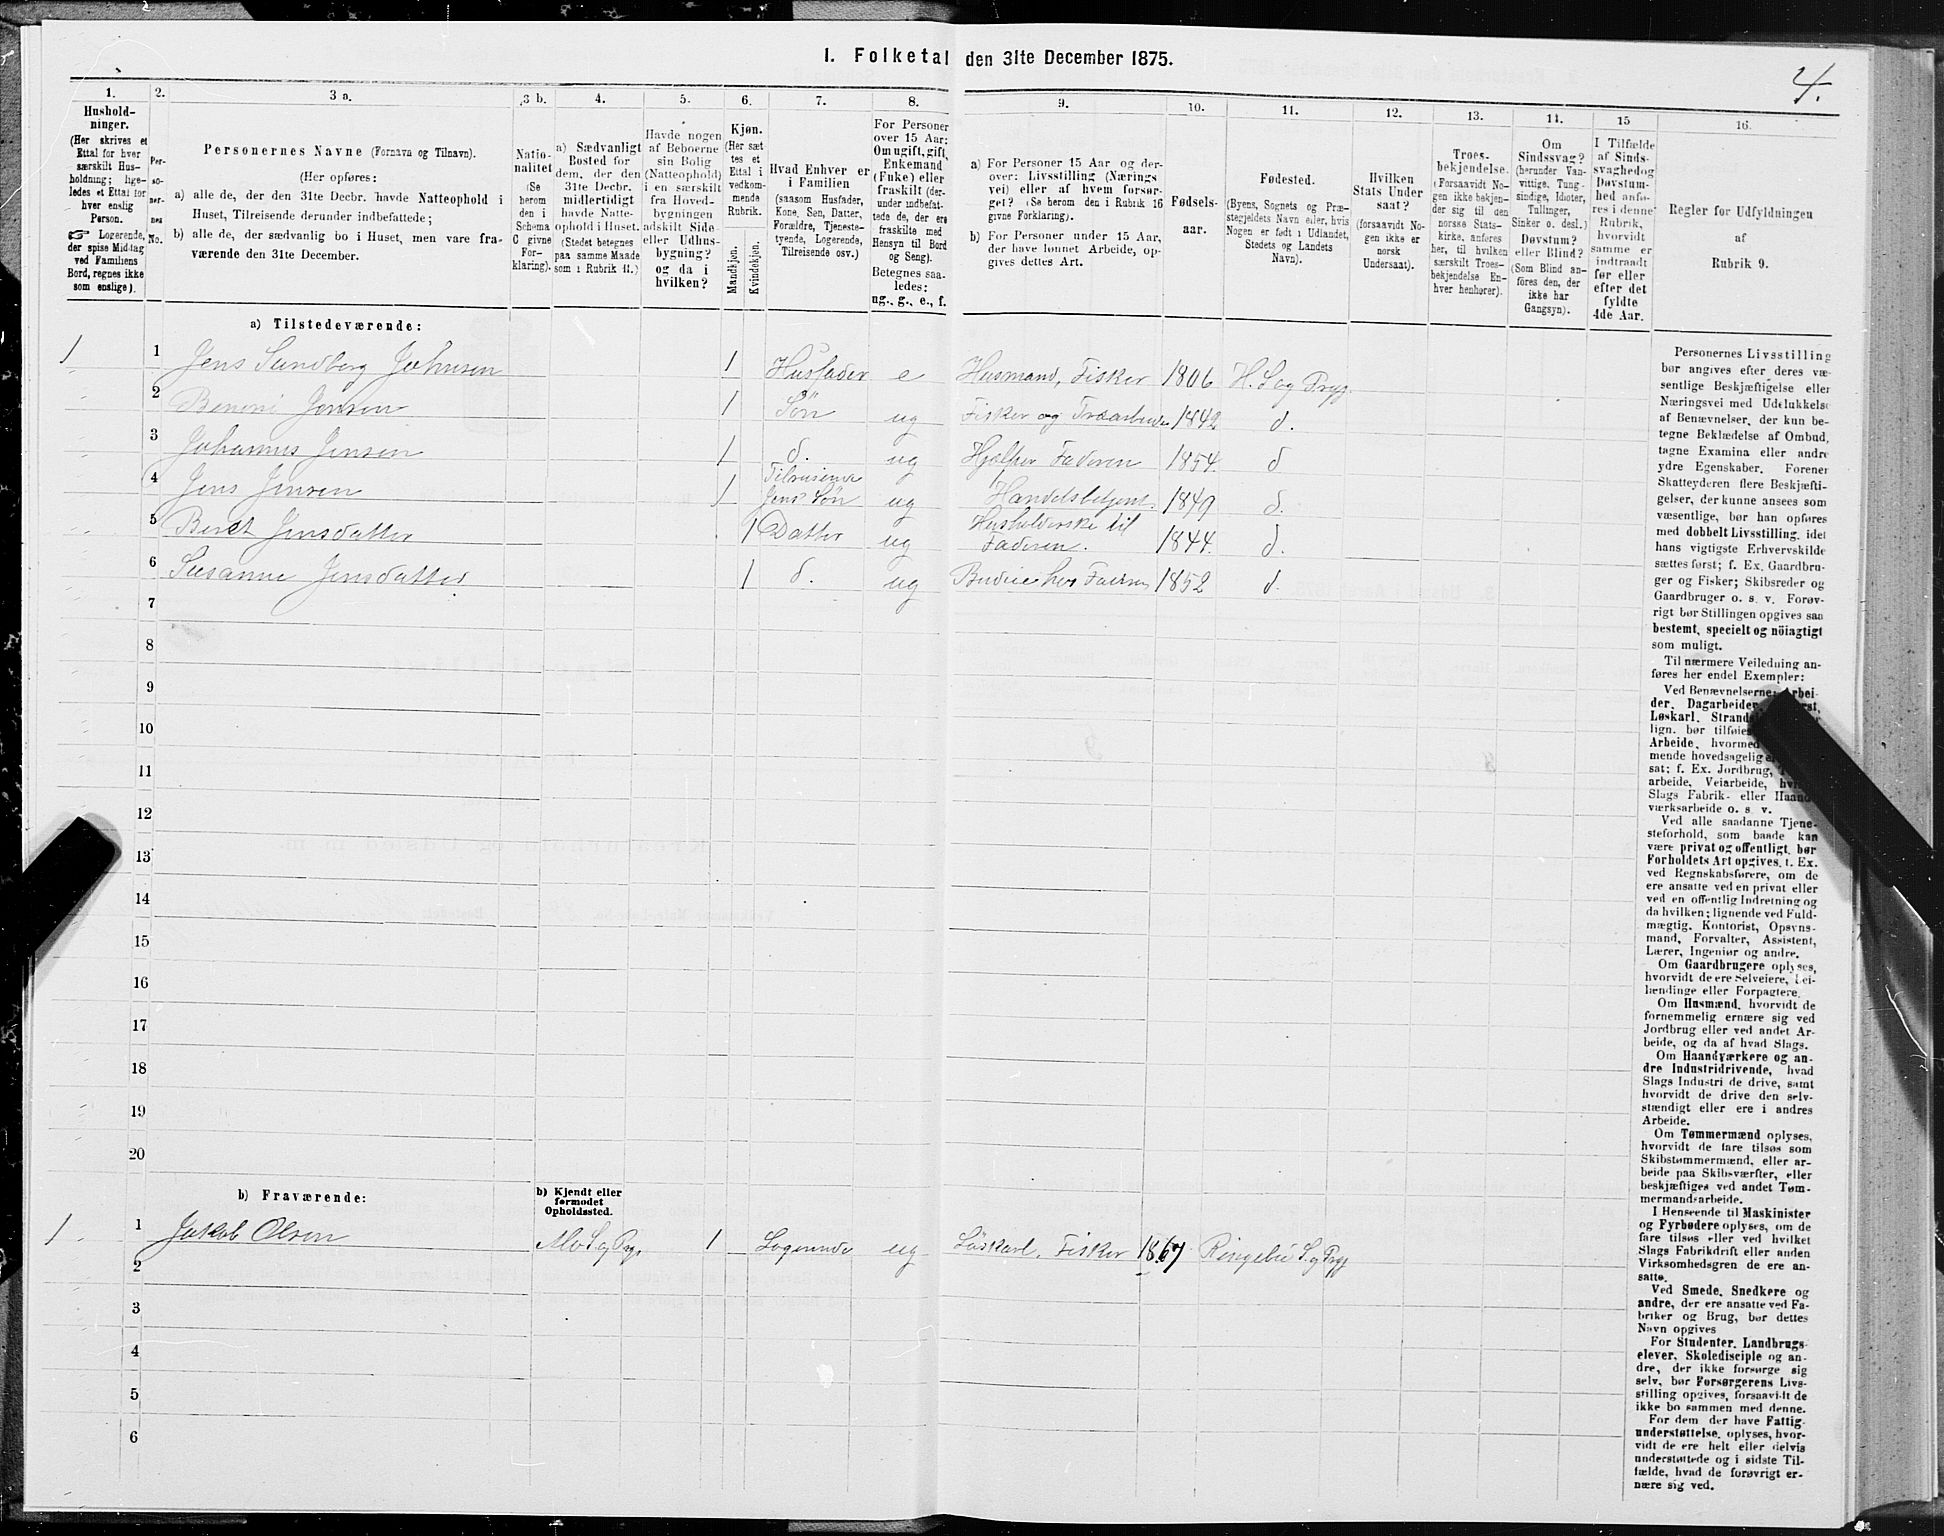 I. Folketal den 31te December 1875.
4.
1.
Hushold-
ninger.
(Her skrives et
Ettal for hver
særskilt Hus-
holdning; lige-
ledes et Ettal for
hver enslig
Person.
☞ Logerende,
der spise Middag
ved Familiens
Bord, regnes ikke
som enslige).
2.
Per-
so-
ner-
nes
No.
3 a.
Personernes Navne (Fornavn og Tilnavn).
(Her opføres:
a) alle de, der den 31te Decbr. havde Natteophold i
Huset, Tilreisende derunder indbefattede;
b) alle de, der sædvanlig bo i Huset, men vare fra-
værende den 31te December.
3 b.
Natio-
nalitet
(Se
herom
den i
Schema
C givne
For-
klaring).
4.
a) Sædvanligt
Bosted for
dem, der den
31te Decbr.
midlertidigt
havde Natte-
ophold i Huset.
(Stedet betegnes
paa samme Maade
som i Rubrik 11.)
5.
Havde nogen
af Beboerne
sin Bolig
(Natteophold)
i en særskilt
fra Hoved-
bygningen
adskilt Side-
eller Udhus-
bygning?
og da i
hvilken?
6.
Kjøn.
(Her sæt
tes et
Ettal i
vedkom-
mende
Rubrik.
Mandkjøn.
Kvindekjøn.
7.
Hvad Enhver er
i Familien
(saasom Husfader,
Kone, Søn, Datter,
Forældre, Tjeneste-
tyende, Logerende,
Tilreisende osv.)
8.
For Personer
over 15 Aar:
Om ugift, gift,
Enkemand
(Fuke) eller
fraskilt (der-
under indbefat-
tede de, der ere
fraskilte med
Hensyn til Bord
og Seng).
Betegnes saa-
ledes:
ug., g., e., f.
9.
a) For Personer 15 Aar og der-
over: Livsstilling (Nærings
vei) eller af hvem forsør-
get? (Se herom den i Rubrik 16
givne Forklaring).
b) For Personer under 15 Aar,
der have lønnet Arbeide, op-
gives dettes Art.
10.
Fødsels-
aar.
11.
Fødested.
(Byens, Sognets og Præ-
stegjeldets Navn eller, hvis
Nogen er født i Udlandet,
Stedets og Landets
Navn).
12.
Hvilken
Stats Under
saat?
(forsaavidt No-
gen ikke er
norsk
Undersaat).
13.
Troes-
bekjendelse.
(Forsaavidt No-
gen ikke bekjen-
der sig til den
norske Stats-
kirke, anføres
her, til hvilken
særskilt Troes-
bekjendelse En-
hver henhører).
14.
Om
Sindssvag?
(herunder Van-
vittige, Tung-
sindige, Idioter,
Tullinger,
Sinker o. desl.)
Døvstum?
eller Blind?
(Som Blind an-
føres den, der
ikke har
Gangsyn).
15
I Tilfælde
af Sinds-
svaghed og
Døvstum-
hed anfø-
res i denne
Rubrik,
hvorvidt
samme er
indtraadt
før eller
efter det
fyldte
4de Aar.
16.
Regler for Udfyldningen
af
Rubrik 9.
a) Tilstedeværende:
1 1 Jens Sundberg Johnsen 1 Husfader e Husmand, Fisker 1806 H. S og Prgj.
2 Benoni Jensen 1 Søn ug Fisker og Træarbeider 1842 d.
3 Johannes Jensen 1 d. ug Hjelper Faderen 1854 d
4 Jens Jensen 1 Tilreisende
Jens' Søn ug Handelsbetjent. 1849 d.
5 Beret Jensdatter 1 Datter ug Husholderske til
Faderen. 1844 d.
6 Susanne Jensdatter 1 d. ug Budeie hos Faderen 1852 d.
7
8
9
10
11
12
13
14
15
16
17
18
19
20
b) Fraværende:
b) Kjendt eller
formodet
Opholdssted.
1 1 Jakob Olsen S og Prgj 1 Logerende ug Løskarl, Fisker 1867 Ringebu S. og Prgj
2
3
4
5
6
Personernes Livsstilling
bør angives efter deres væ-
sentlige Beskjæftigelse eller
Næringsvei med Udelukkelse
af Benævnelser, der kun be-
tegne Beklædelse af Ombud,
tagne Examina eller andre
ydre Egenskaber. Forener
Skatteyderen flere Beskjæfti-
gelser, der kunne ansees som
væsentlige, bør han opføres
med dobbelt Livsstilling, idet
hans vigtigste Erhvervskilde
sættes først; f. Ex. Gaardbru-
ger og Fisker; Skibsreder og
Gaardbruger o. s. v. Forøv-
rigt bør Stillingen opgives saa
bestemt, specielt og nöiagtigt
som muligt.
Til nærmere Veiledning an-
føres her endel Exempler:
Ved Benævnelserne: Arbei-
der, Dagarbeider,
Løskarl, Strand
lign. bør tilføies
Arbeide, hvormed
mende hovedsagelig er
sat; f. Ex. Jordbrug,
arbeide, Veiarbeide,
Slags Fabrik- eller Haand-
værksarbeide o. s. v.
Ved alle saadanne Tjene-
steforhold, som baade kan
være privat og offentligt, bør
Forholdets Art opgives, f. Ex.
ved Regnskabsførere, om de
ere ansatte ved en privat eller
ved en offentlig Indretning og
da hvilken; lignende ved Fuld-
mægtig, Kontorist, Opsyns-
mand, Forvalter, Assistent,
Lærer, Ingeniør og andre.
Om Gaardbrugere oplyses,
hvorvidt de ere Selveiere, Lei-
lændinge eller Forpagtere.
Om Husmænd, hvorvidt de
fornemmelig ernære sig ved
Jordbrug eller ved andet Ar-
beide, og da af hvad Slags.
Om Haandværkere og an-
dre Industridrivende, hvad
Slags Industri de drive, samt
hvorvidt de drive den selv-
stændigt eller ere i andres
Arbeide.
Om Tømmermænd oplyses,
hvorvidt de fare tilsøs som
Skibstømmermænd, eller ar-
beide paa Skibsværfter, eller
beskjæftiges ved andet Tøm-
mermandsarbeide.
I Henseende til Maskinister
og Fyrbødere oplyses, om de
fare tilsøs eller ved hvilket
Slags Fabrikdrift eller anden
Virksomhedsgren de ere an-
satte.
Ved Smede, Snedkere og
andre, der ere ansatte ved Fa-
briker og Brug, bør dettes
Navn opgives
For Studenter, Landbrugs-
elever, Skoledisciple og an-
dre, der ikke forsørge sig
selv, bør Forsørgerens Livs-
stilling opgives, forsaavidt de
ikke bo sammen med denne.
For dem der have Fattig-
understøttelse, oplyses, hvor-
vidt de ere helt eller delvis
understøttede og i sidste Til-
fælde, hvad de forøvrigt er-
nære sig ved.